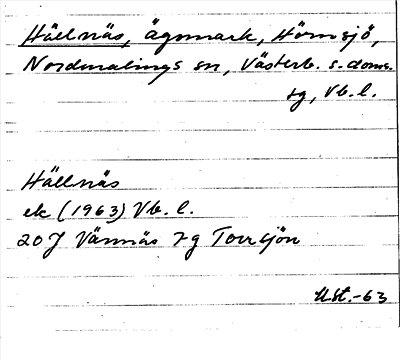 Hällnäs, Ägnmark, Hörnsjö,
Nordmalings sn, Västerb. s. doms.
sg, Vb. l.
Hällnäs
ek (1963) Vb. l.
20J Vännäs 7g Torrsjön
Ust.-63